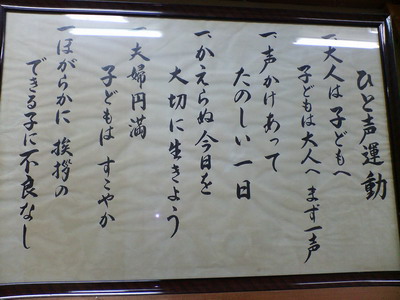 ひと声運動
一、大人は子どもへ
子どもは大人へまず一声
一、声かけあって
たのしい一日
一、かえらぬ今日を
大切に生きよう
一、夫婦円満
子どもは すこやか
一、ほがらかに 挨拶の
できる子に不良なし